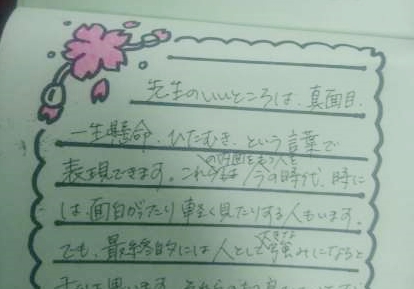 先生のいいところは、真面目、
一生懸命、ひたむき、という言葉で
表現できます。これらは今の時代、時に
は、面白がったり軽く見たりする人もいます。
でも、最終的には人として大きな強みになると